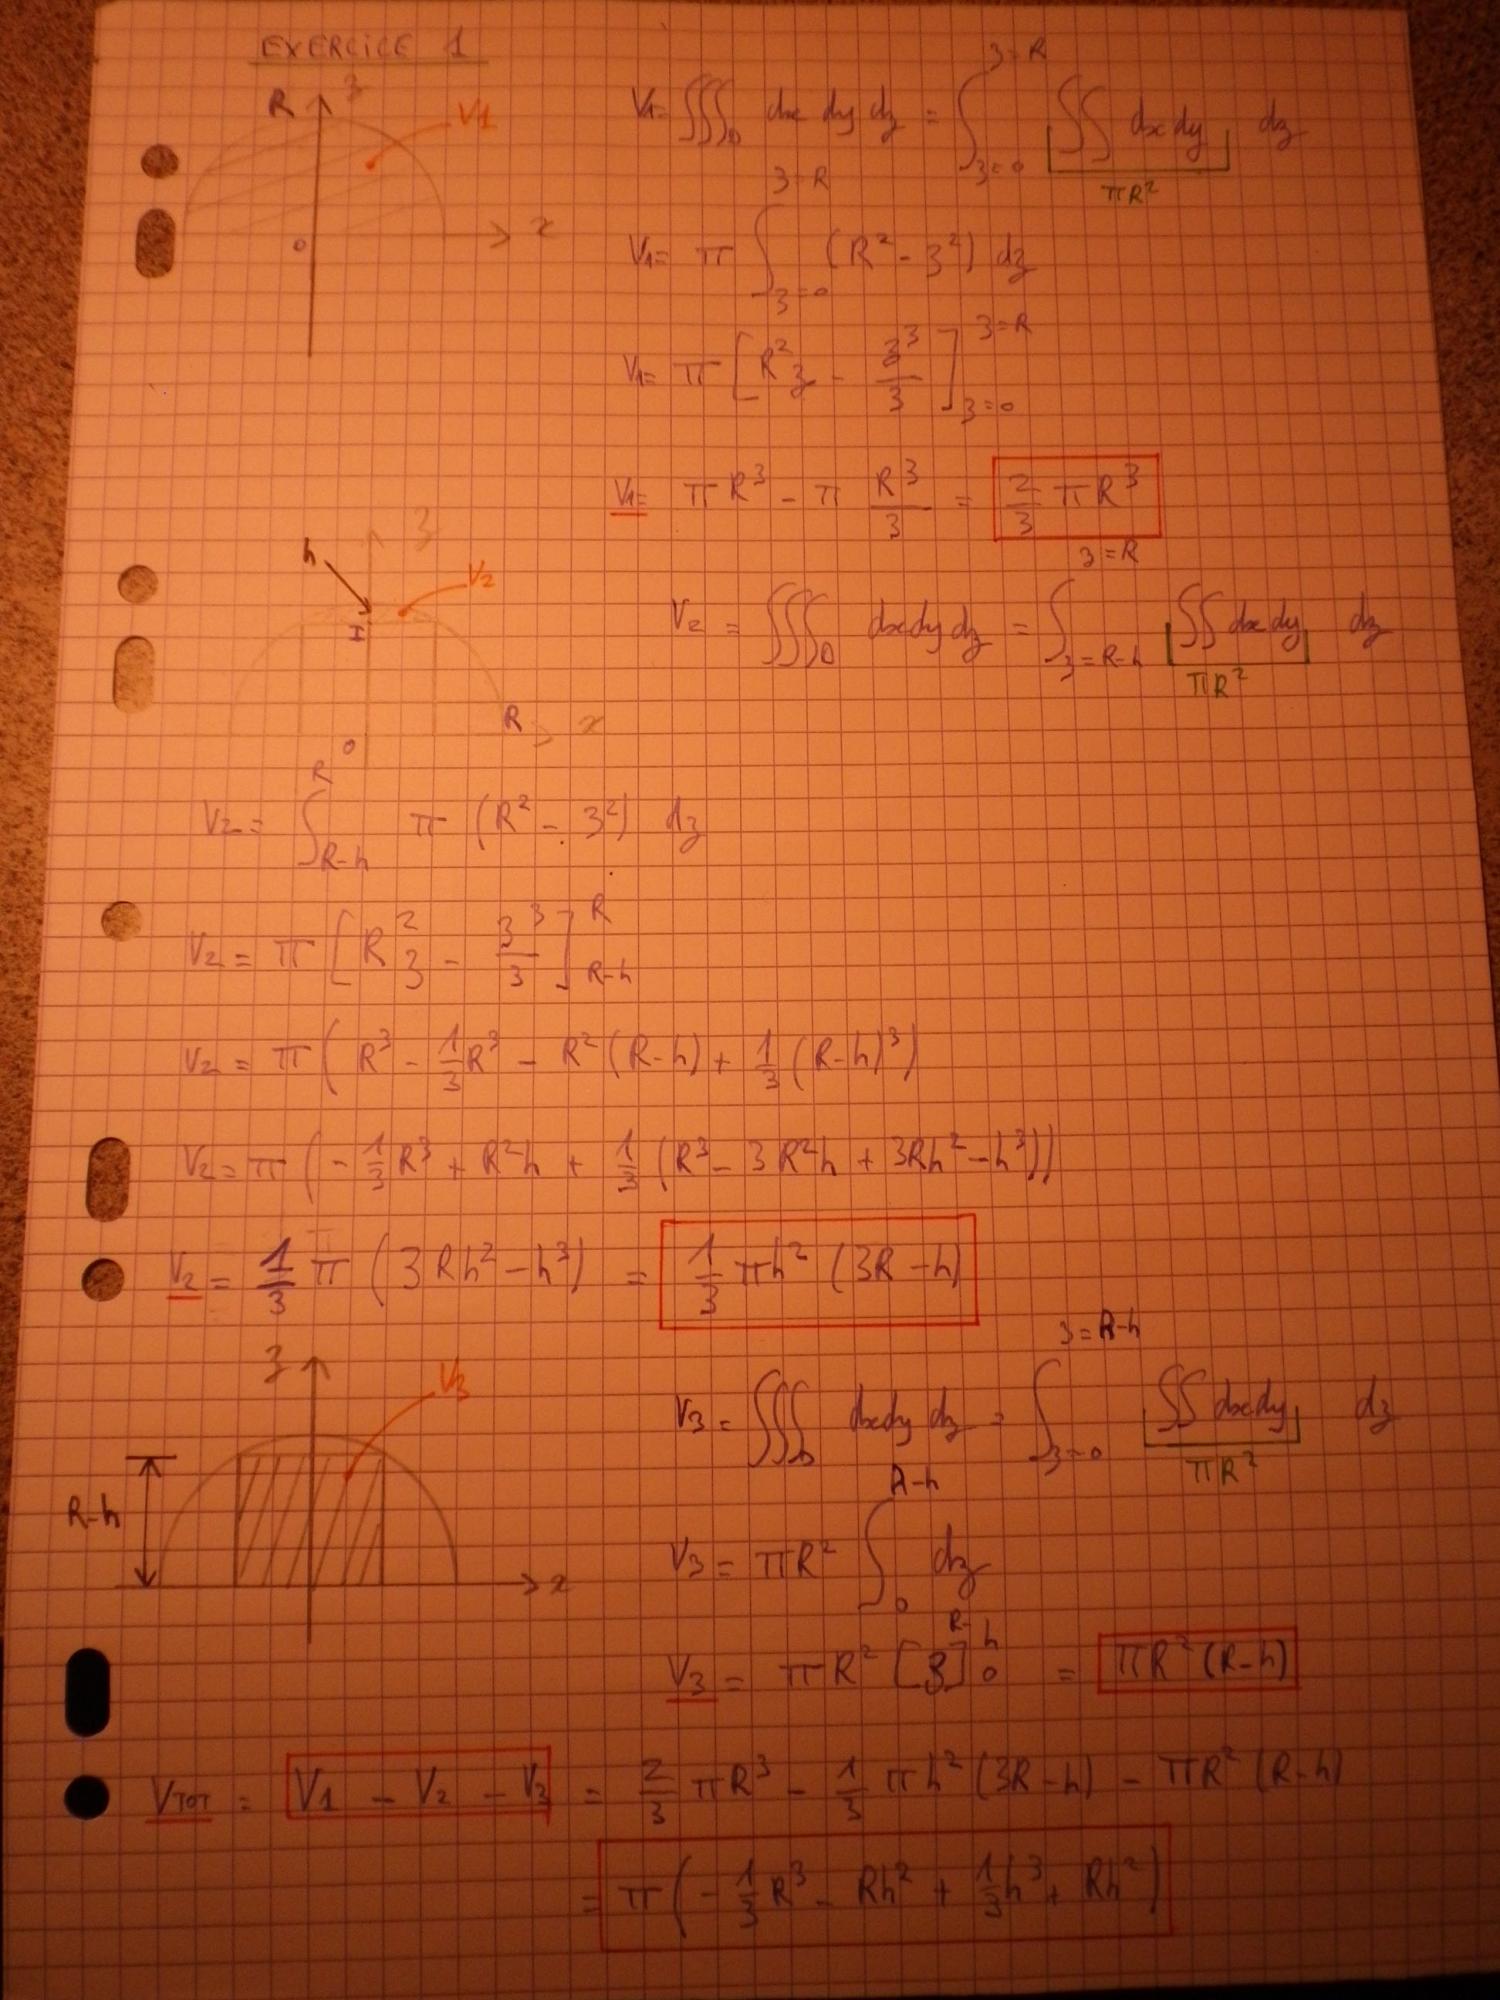 EXERCICE 1
R z V1 o x
V1= ∭_D dx dy dz = ∫_{z=0}^{z=R} ∬ dx dy dz
πR²
V1= π ∫_{z=0}^{z=R} (R² - z²) dz
V1= π [R²z - z³/3]_{z=0}^{z=R}
V1= πR³ - π R³/3 = 2/3 πR³
h z V2 I R x o
V2 = ∭_D dx dy dz = ∫_{z=R-h}^{z=R} ∬ dx dy dz
πR²
V2= ∫_{R-h}^{R} π (R² - z²) dz
V2 = π [R²z - z³/3]_{R-h}^{R}
V2 = π (R³ - 1/3 R³ - R²(R-h) + 1/3 (R-h)³)
V2= π (-1/3 R³ + R²h + 1/3 (R³ - 3R²h + 3Rh² - h³))
V2 = 1/3 π (3Rh² - h³) = 1/3 πh² (3R - h)
z V3 R-h x
V3 = ∭_D dx dy dz = ∫_{z=0}^{z=R-h} ∬ dx dy dz
πR²
V3 = πR² ∫_0^{R-h} dz
V3 = πR² [z]_0^{R-h} = πR² (R-h)
VTOT = V1 - V2 - V3 = 2/3 πR³ - 1/3 πh² (3R-h) - πR² (R-h)
= π (-1/3 R³ - Rh² + 1/3 h³ + Rh²)